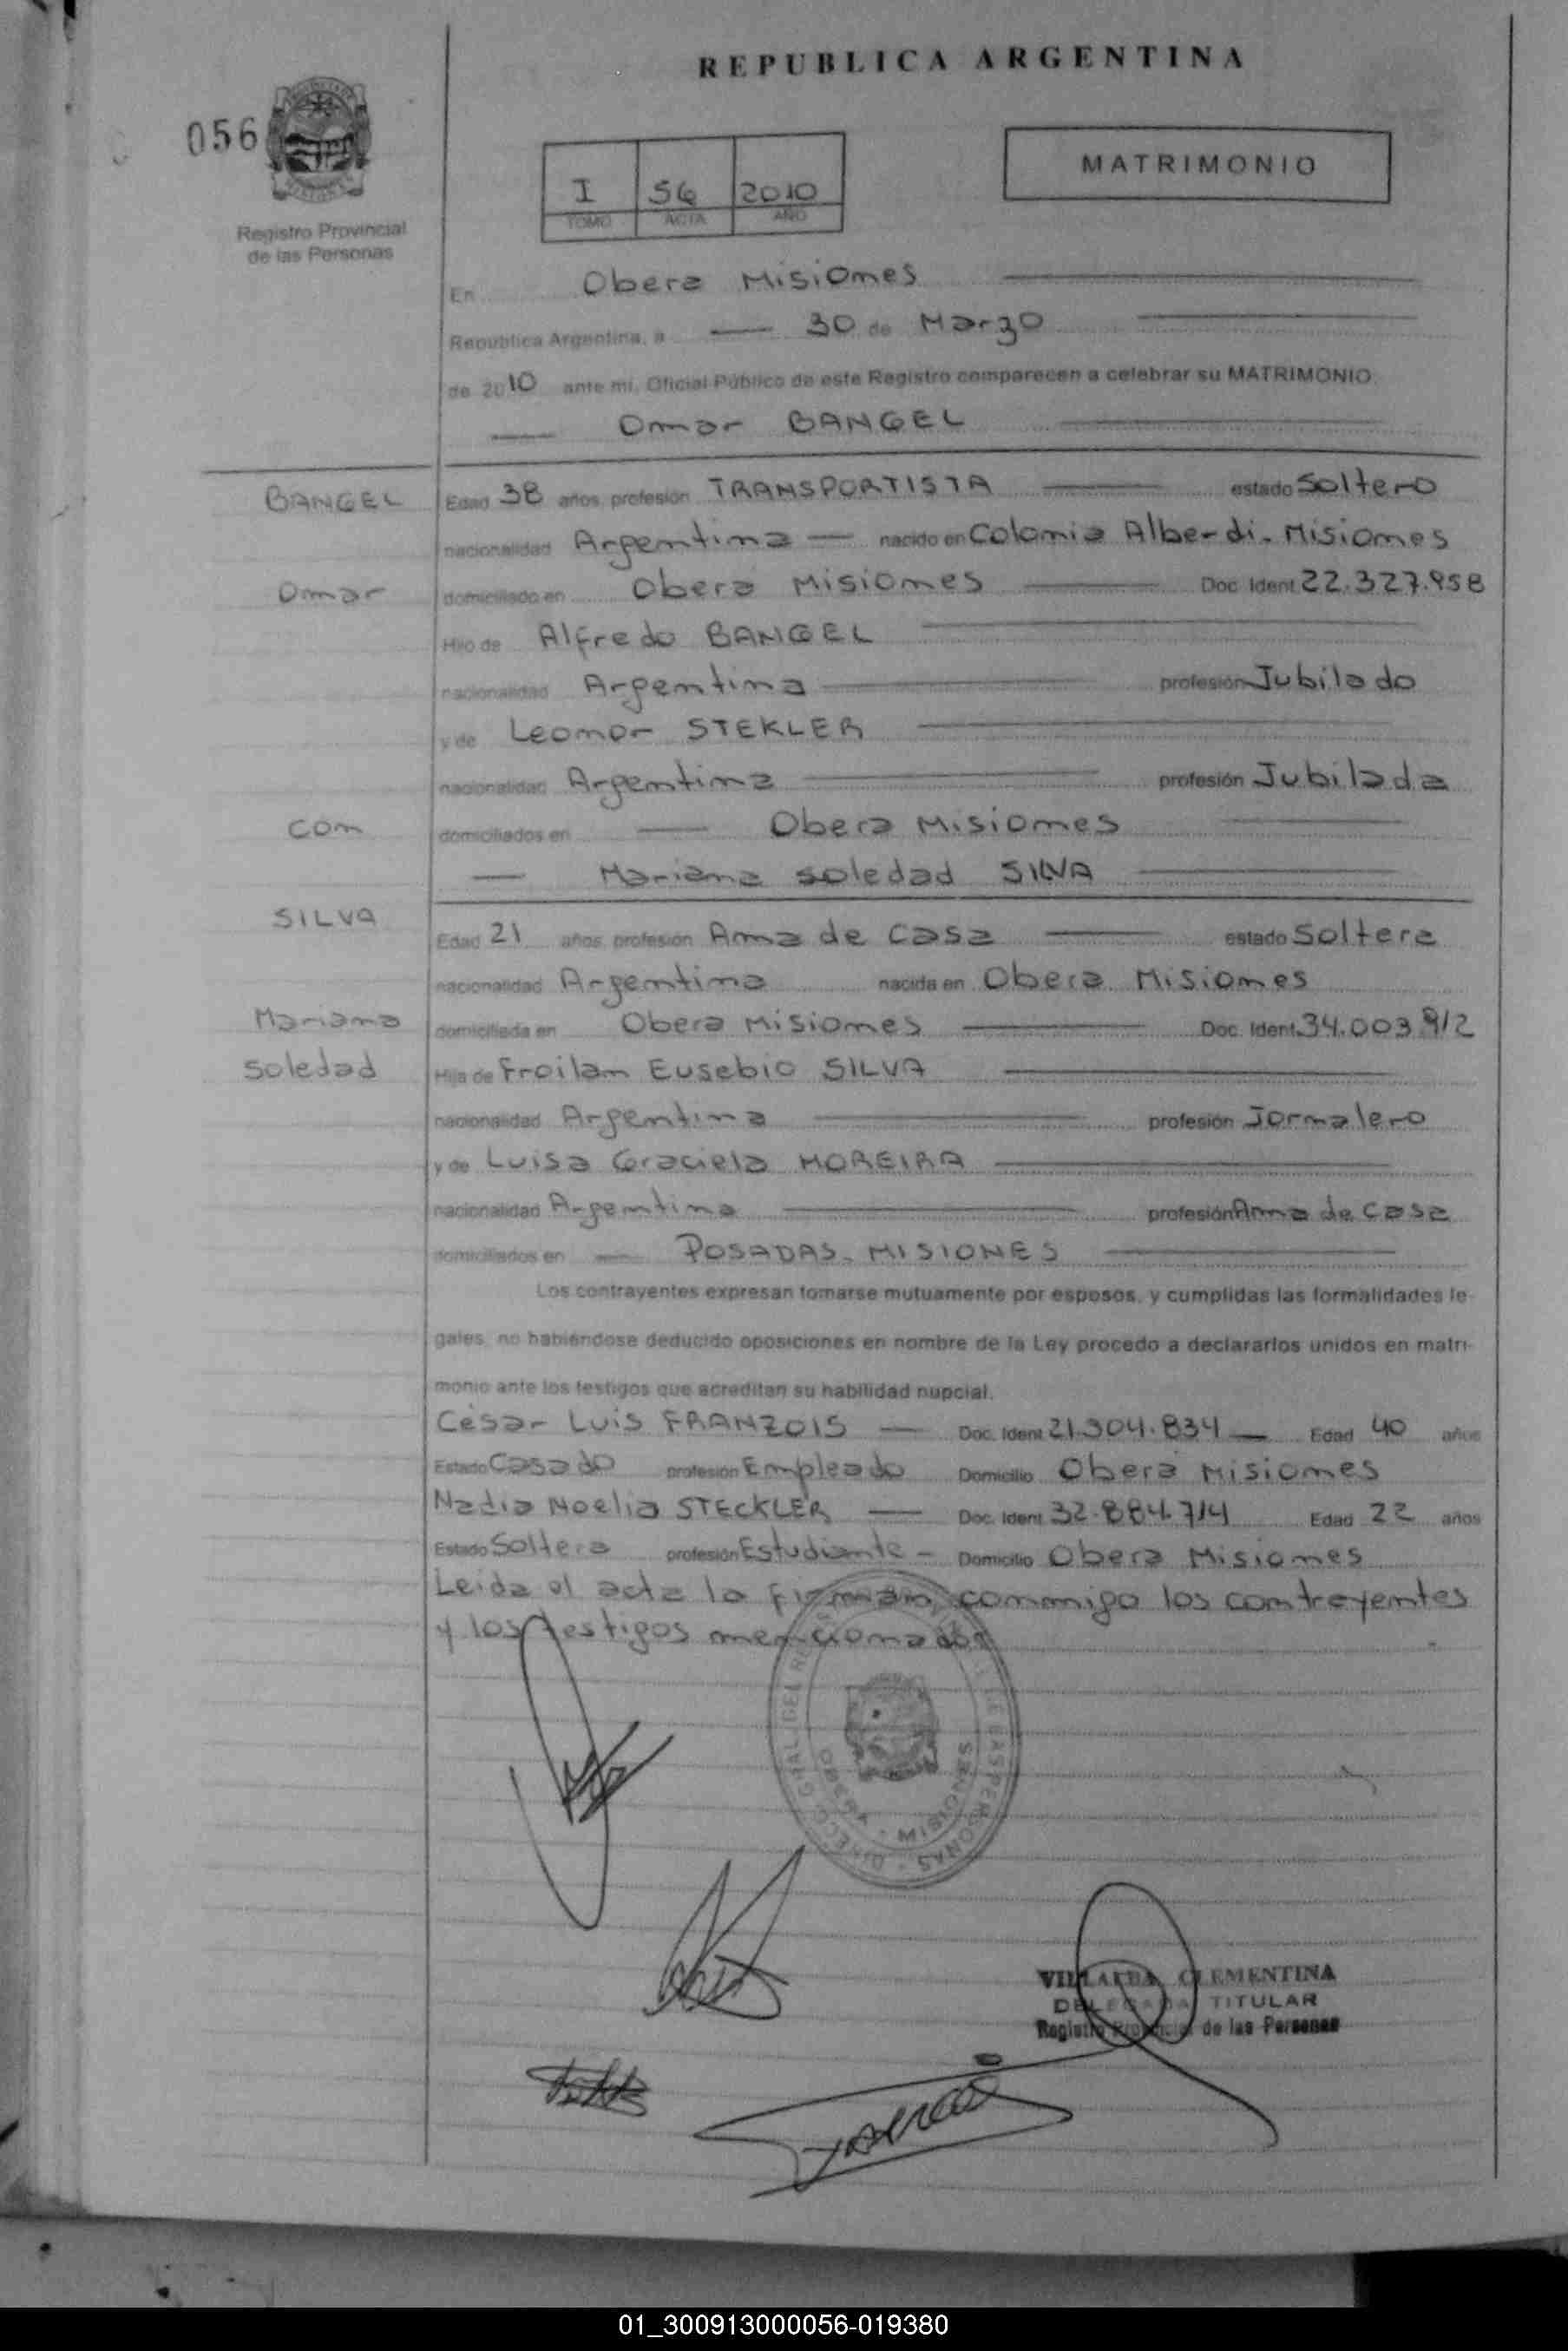 REPUBLICA ARGENTINA
056
I 56 2010
TOMO ACTA AÑO
MATRIMONIO
Registro Provincial
de las Personas
En Obera Misiones
Republica Argentina, a 30 de Marzo
de 2010 ante mi, Oficial Público de este Registro comparecen a celebrar su MATRIMONIO
Omar BANGEL
BANGEL
Edad 38 años, profesión TRANSPORTISTA estado Soltero
nacionalidad Argentina nacido en Colonia Alberdi - Misiones
Omar
domiciliado en Oberá Misiones Doc. Ident. 22.327.958
Hijo de Alfredo BANGEL
nacionalidad Argentina profesión Jubilado
y de Leonor STEKLER
nacionalidad Argentina profesión Jubilada
con
domiciliados en Obera Misiones
Mariana Soledad SILVA
SILVA
Edad 21 años, profesión Ama de casa estado Soltera
nacionalidad Argentina nacida en Obera Misiones
Mariana
domiciliada en Obera Misiones Doc. Ident. 34.003.912
Soledad
Hija de Froilan Eusebio SILVA
nacionalidad Argentina profesión Jornalero
y de Luisa Graciela MOREIRA
nacionalidad Argentina profesión Ama de casa
domiciliados en POSADAS - MISIONES
Los contrayentes expresan tomarse mutuamente por esposos, y cumplidas las formalidades le-
gales, no habiéndose deducido oposiciones en nombre de la Ley procedo a declararlos unidos en matri-
monio ante los testigos que acreditan su habilidad nupcial.
César Luis FRANZOIS Doc. Ident. 21.304.834 Edad 40 años
Estado Casado profesión Empleado Domicilio Oberá Misiones
Nadia Noelia STECKLER Doc. Ident. 32.884.714 Edad 22 años
Estado Soltera profesión Estudiante Domicilio Obera Misiones
Leida el acta la firman conmigo los contrayentes
y los testigos mencionados
OBERA - MISIONES
VILLALBA CLEMENTINA
DELEGADA TITULAR
Registro Provincial de las Personas
01_300913000056-019380